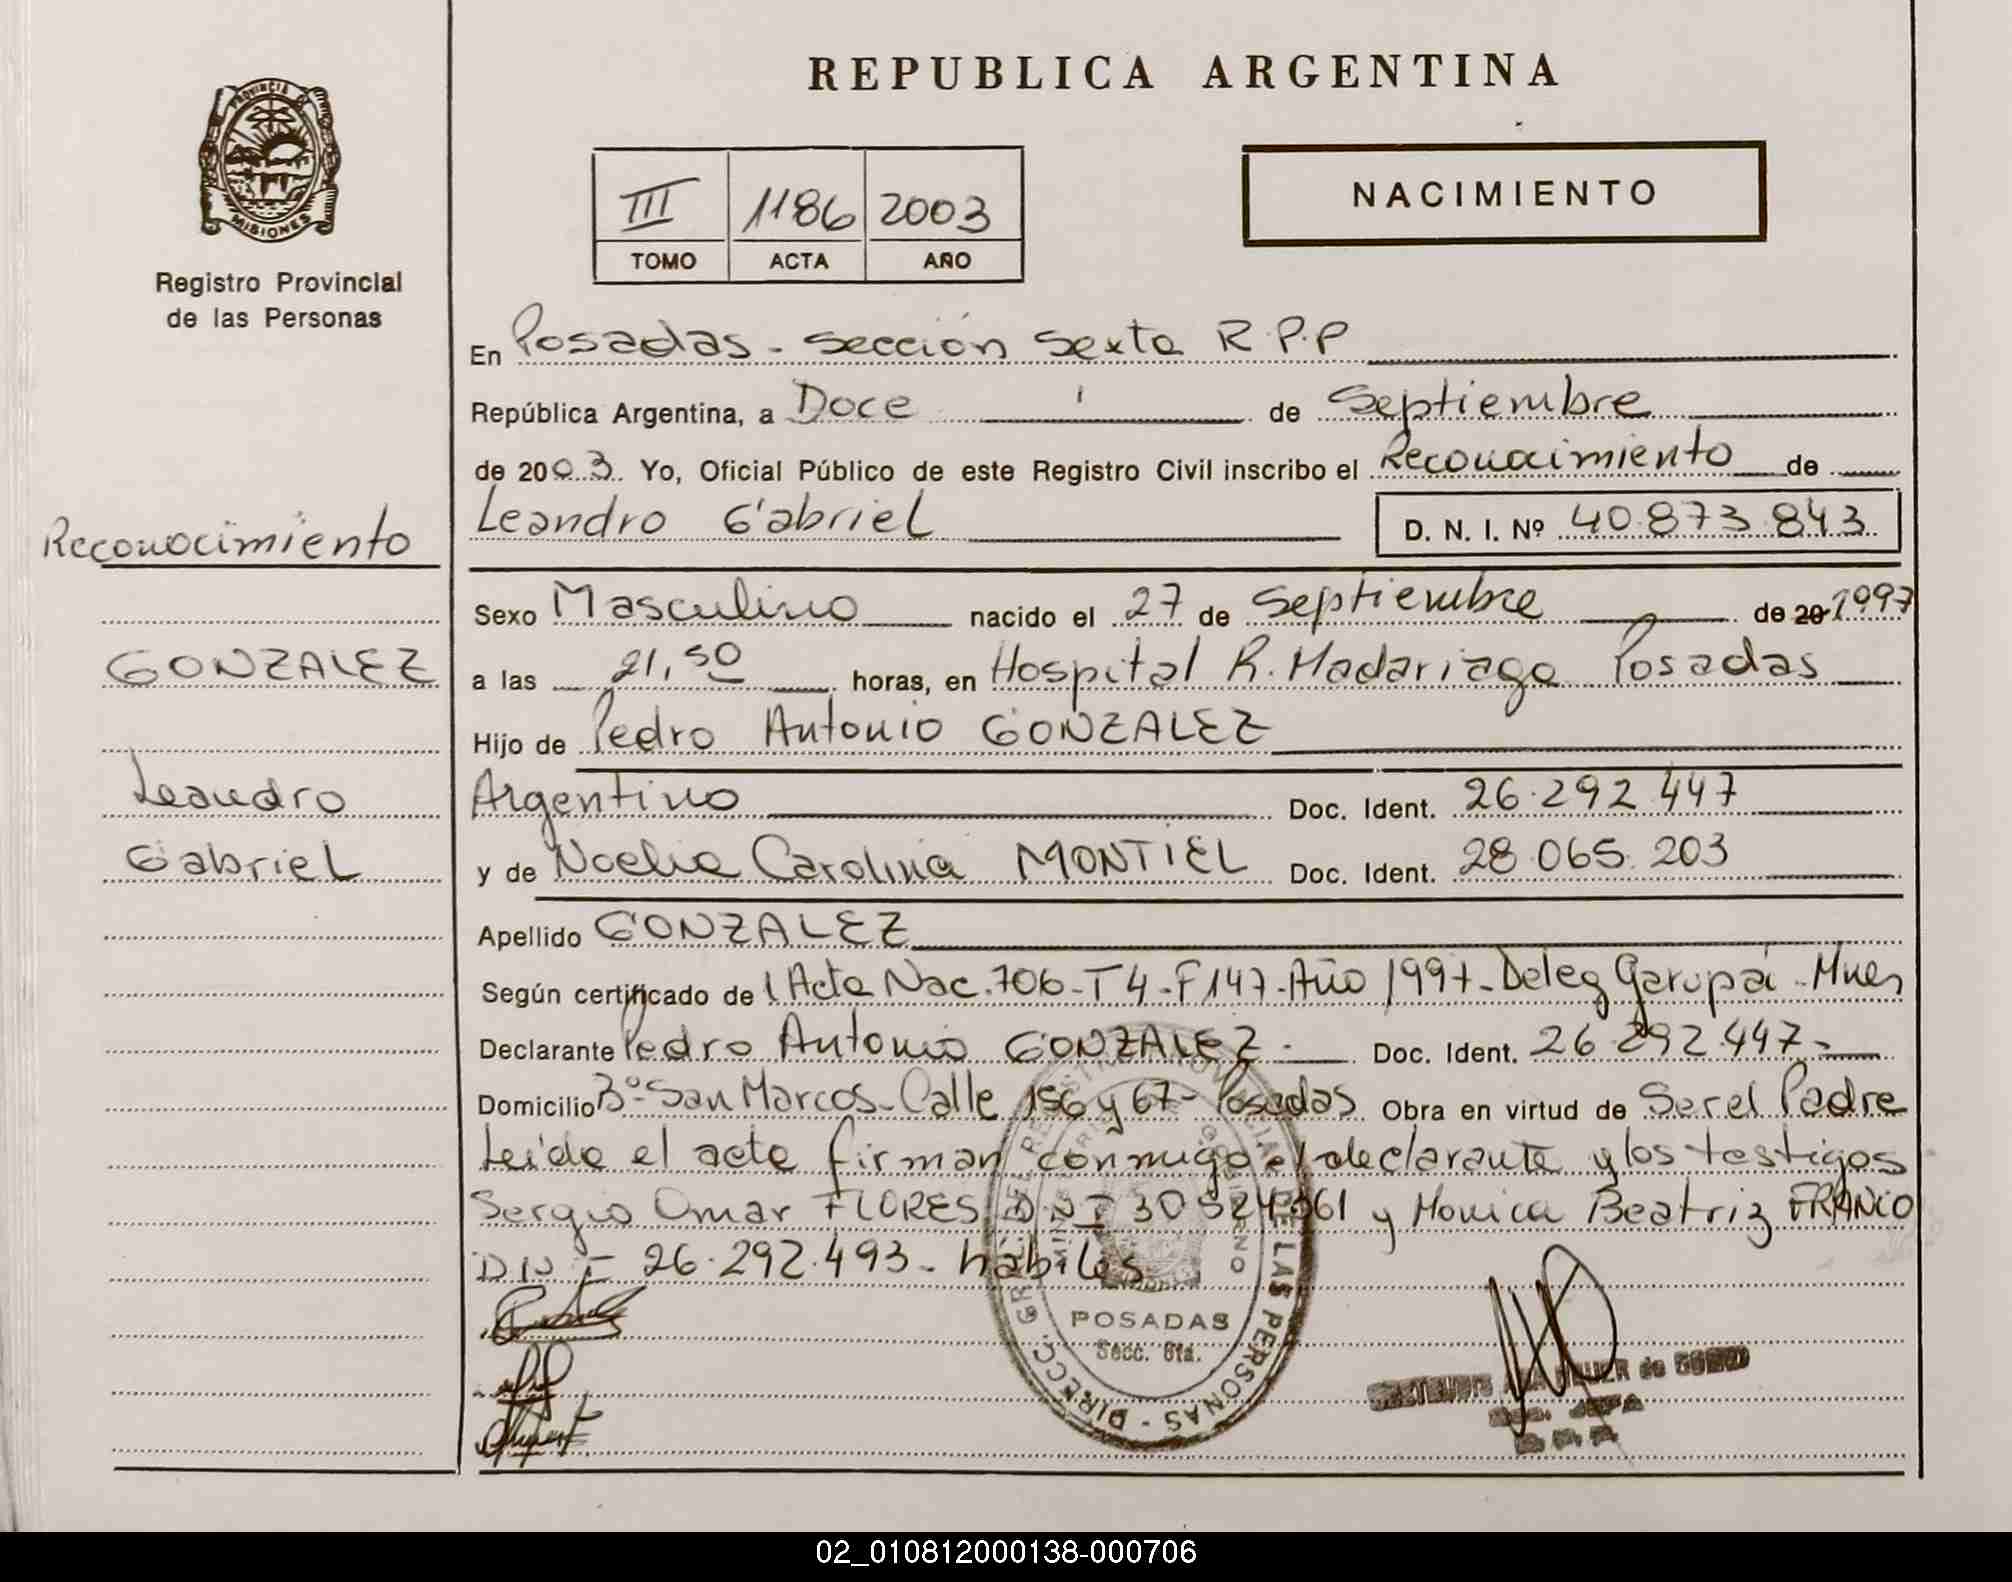 REPUBLICA ARGENTINA
PROVINCIA DE
MISIONES
Registro Provincial
de las Personas
III 1186 2003
TOMO ACTA AÑO
NACIMIENTO
En Posadas - sección Sexta R.P.P
República Argentina, a Doce de Septiembre
de 2003. Yo, Oficial Público de este Registro Civil inscribo el Reconocimiento de
Leandro Gabriel
D. N. I. Nº 40.873.843
Reconocimiento
GONZALEZ
Leandro
Gabriel
Sexo Masculino nacido el 27 de Septiembre de 20 1997
a las 21,50 horas, en Hospital R. Madariaga Posadas
Hijo de Pedro Antonio GONZALEZ
Argentino Doc. Ident. 26.292.447
y de Noelia Carolina MONTIEL Doc. Ident. 28.065.203
Apellido GONZALEZ
Según certificado de Acta Nac. 706 - T 4 - F 147 - Año 1997 - Deleg Garupá - Mnes
Declarante Pedro Antonio GONZALEZ - Doc. Ident. 26.292.447 -
Domicilio Bº San Marcos - Calle 156 y 67 - Posadas Obra en virtud de Ser el Padre
Leída el acta firman conmigo el declarante y los testigos
Sergio Omar FLORES DNI 30 524 361 y Monica Beatriz FRANCO
DNI 26.292.493 - hábiles
POSADAS
Secc. 6ta.
DIRECC. GRAL. DEL REGISTRO PROVINCIAL DE LAS PERSONAS -
MINISTERIO GOBIERNO
02_010812000138-000706